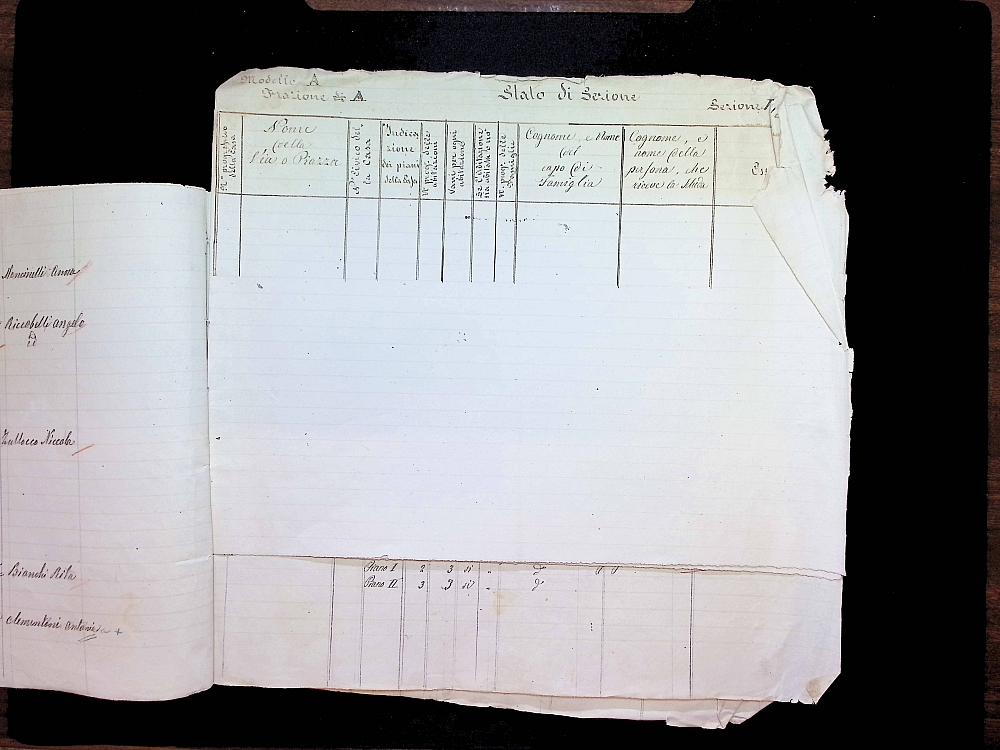 Modello A
Frazione di A
Stato di Sezione
Sezione
N° progressivo della Casa
Nome
della
Via o Piazza
N° Civico del
la Casa
Indica
zione
dei piani
della Casa
N° prog. delle
abitazioni
Vani per ogni
abitazione
Se l'abitazione
sia abitata o no
N° prog. delle
Famiglie
Cognome, e Nome
del
capo di
Famiglia
Cognome, e
nome della
persona, che
riceve la
Mencinelli Anna
Riccobelli Angelo
Niccola
Bianchi Rita
Clementoni Antonio
Piano I 2 3 si
Piano II 3 3 si